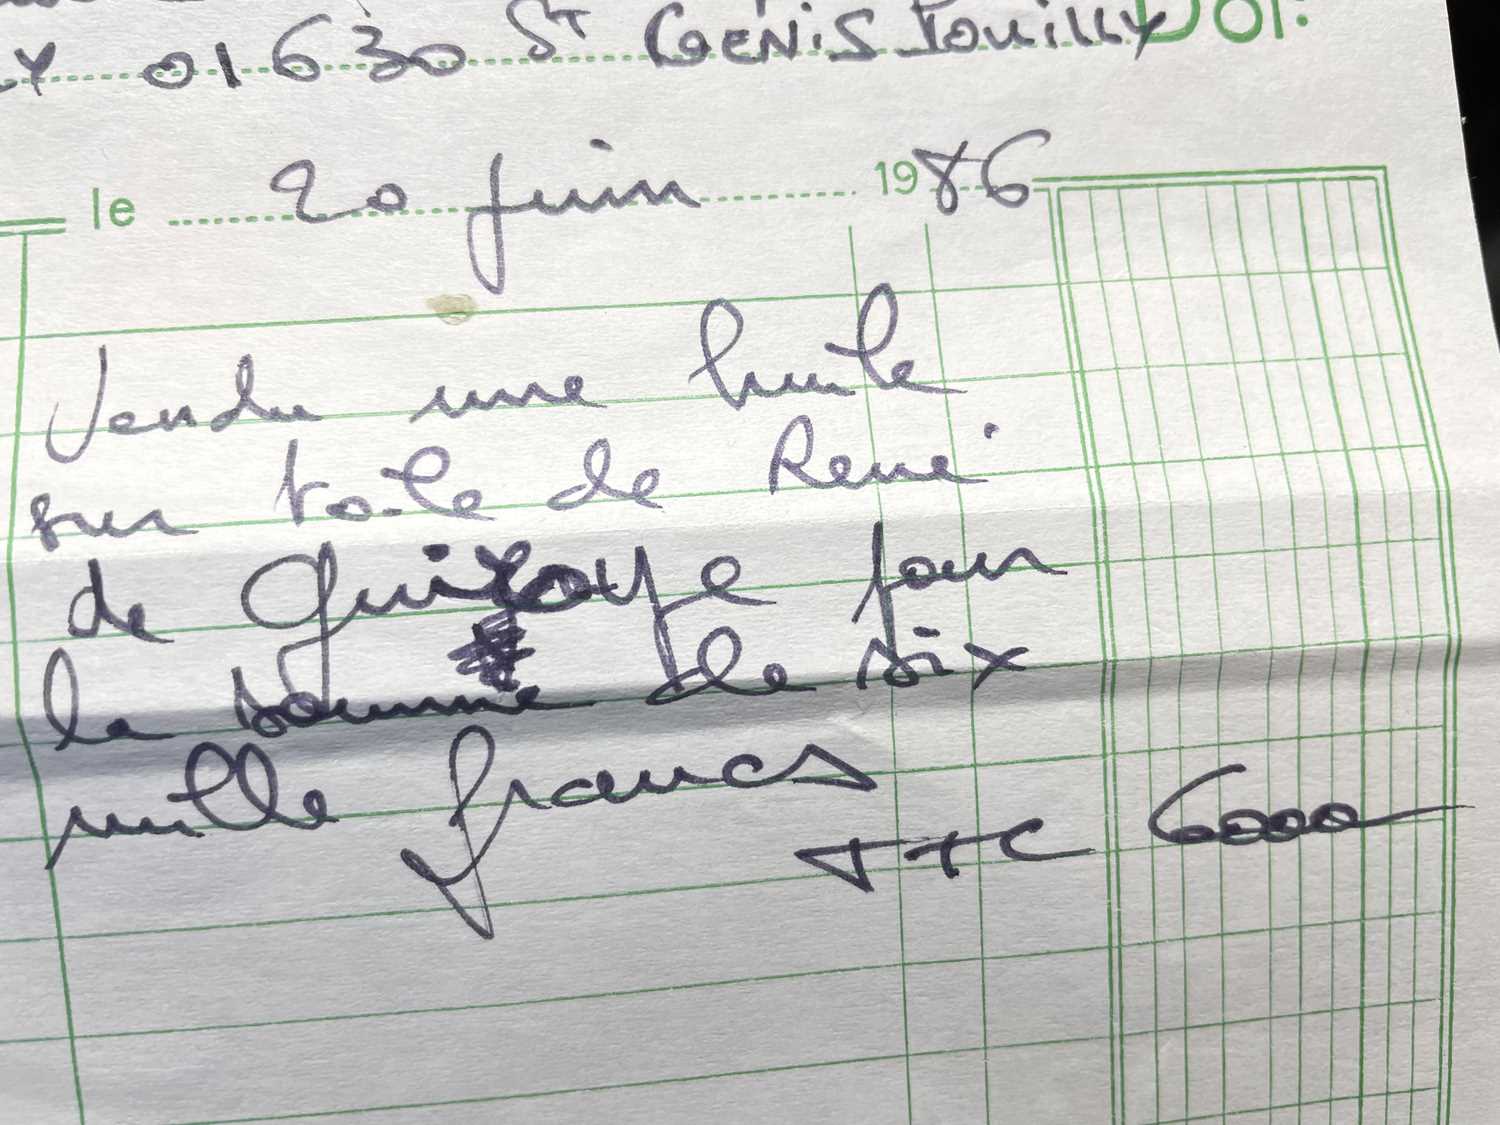 Y 01630 ST GENIS POUILLY Doit
le 20 juin 1986
Vendu une huile
sur toile de René
de Guiroye pour
la somme de six
mille francs
TTC 6000